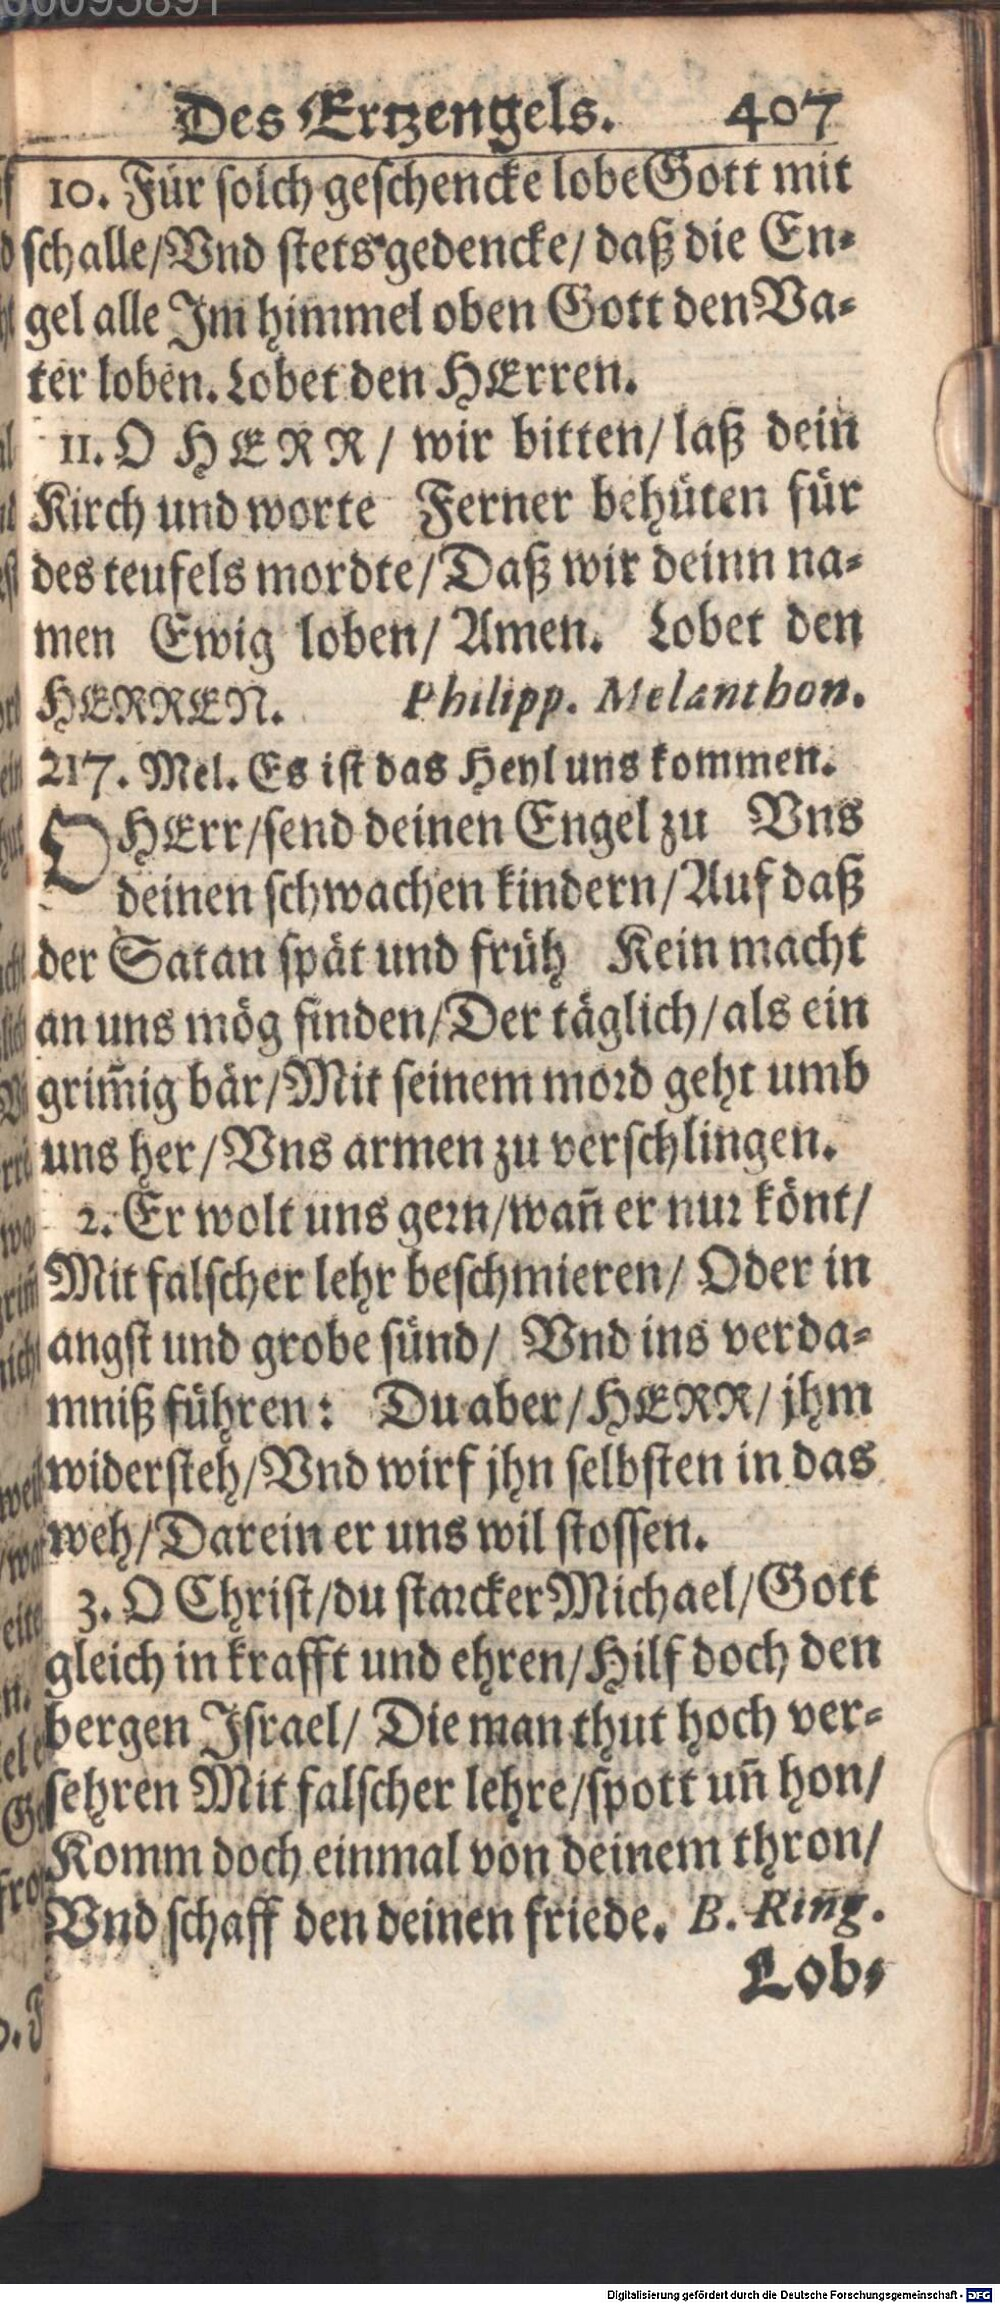 Des Ertzengels. 407
10. Für solch geschencke lobe Gott mit
schalle/Vnd stets gedencke/ daß die En-
gel alle Im himmel oben Gott den Va-
ter loben. Lobet den HErren.
11. O HERR/ wir bitten/ laß dein
Kirch und worte Ferner behüten für
des teufels mordte/ Daß wir deinn na-
men Ewig loben/ Amen. Lobet den
HERREN. Philipp. Melanthon.
217. Mel. Es ist das Heyl uns kommen.
O HErr/send deinen Engel zu Vns
deinen schwachen kindern/ Auf daß
der Satan spät und früh Kein macht
an uns mög finden/Der täglich/als ein
grim̃ig bär/Mit seinem mord geht umb
uns her/Vns armen zu verschlingen.
2. Er wolt uns gern/wañ er nur könt/
Mit falscher lehr beschmieren/ Oder in
angst und grobe sünd/ Vnd ins verda-
mniß führen: Du aber/HERR/ jhm
widersteh/Vnd wirf jhn selbsten in das
weh/Darein er uns wil stossen.
3. O Christ/du starcker Michael/Gott
gleich in krafft und ehren/Hilf doch den
bergen Israel/ Die man thut hoch ver-
sehren Mit falscher lehre/spott uñ hon/
Komm doch einmal von deinem thron/
Vnd schaff den deinen friede. B. Ring.
Lob-
Digitalisierung gefördert durch die Deutsche Forschungsgemeinschaft - DFG